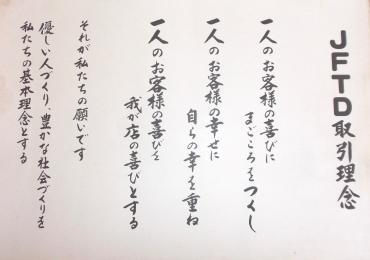 JFTD取引理念
一人のお客様の喜びに
まごころをつくし
一人のお客様の幸せに
自らの幸を重ね
一人のお客様の喜びを
我が店の喜びとする
それが私たちの願いです
優しい人づくり、豊かな社会づくりを
私たちの基本理念とする